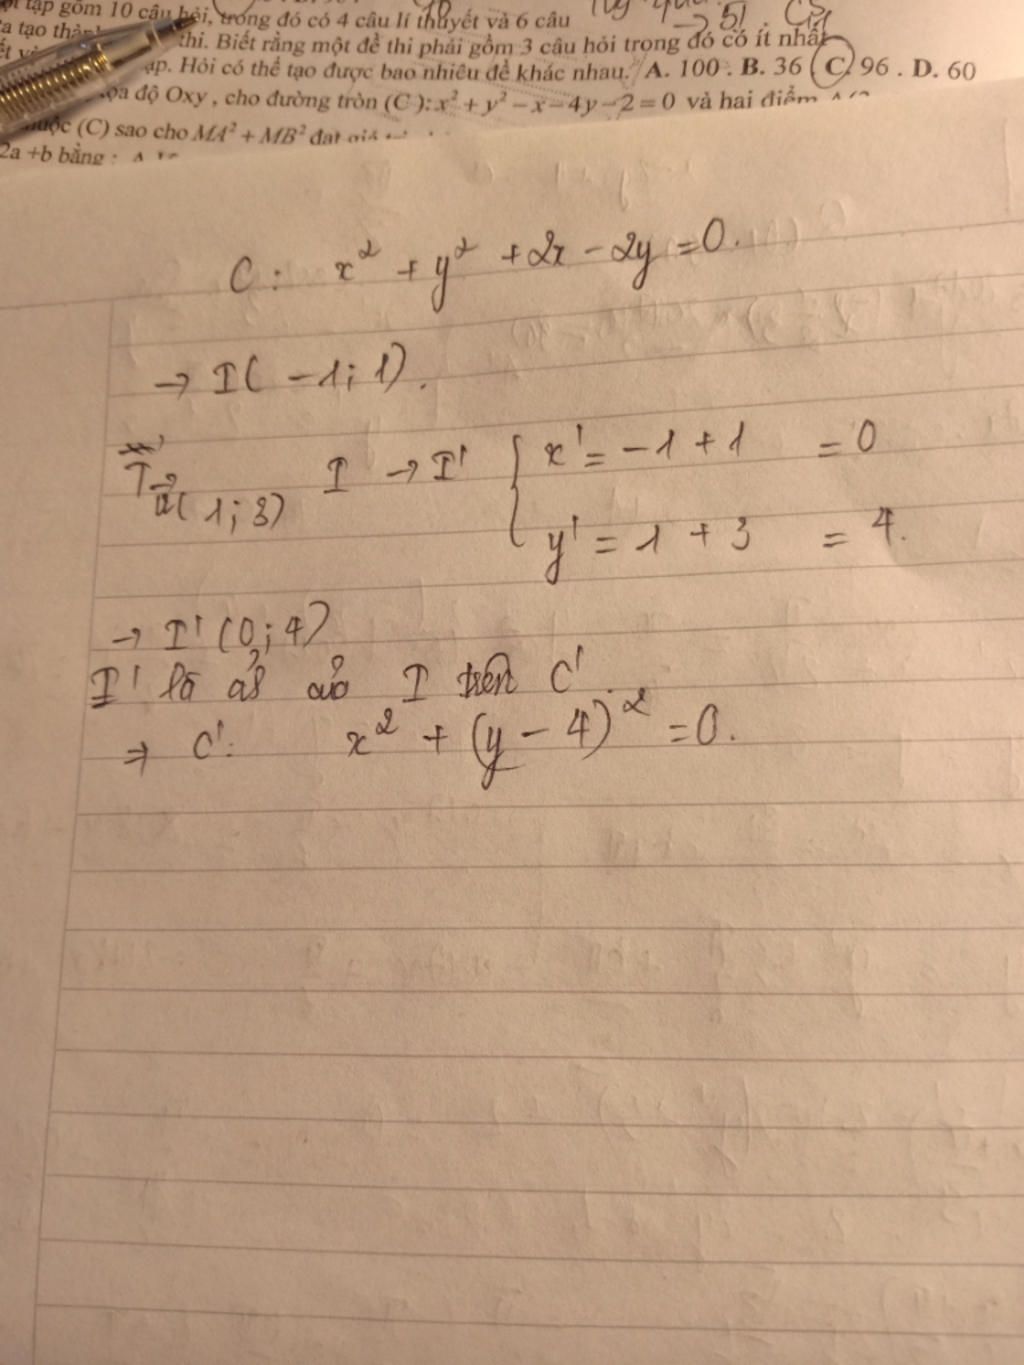 tập gồm 10 câu hỏi, trong đó có 4 câu lí thuyết và 6 câu
→ 5!
tạo thi. Biết rằng một đề thi phải gồm 3 câu hỏi trong đó có ít nhất
Hỏi có thể tạo được bao nhiêu đề khác nhau. A. 100 . B. 36 C. 96 . D. 60
độ Oxy , cho đường tròn (C): x² + y² − x − 4y − 2 = 0 và hai điểm
(C) sao cho MA² + MB² đạt
2a +b bằng :
C : x² + y² + 2x − 2y = 0.
→ I( −1; 1).
T u(1; 3) I → I' { x' = −1 + 1 = 0
y' = 1 + 3 = 4.
→ I' (0; 4)
I' là ảnh của I trên C'.
⇒ C': x² + (y − 4)² = 0.